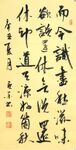 而今識盡愁滋
味欲說還休欲說還
休卻道天涼好個秋
辛丑夏月